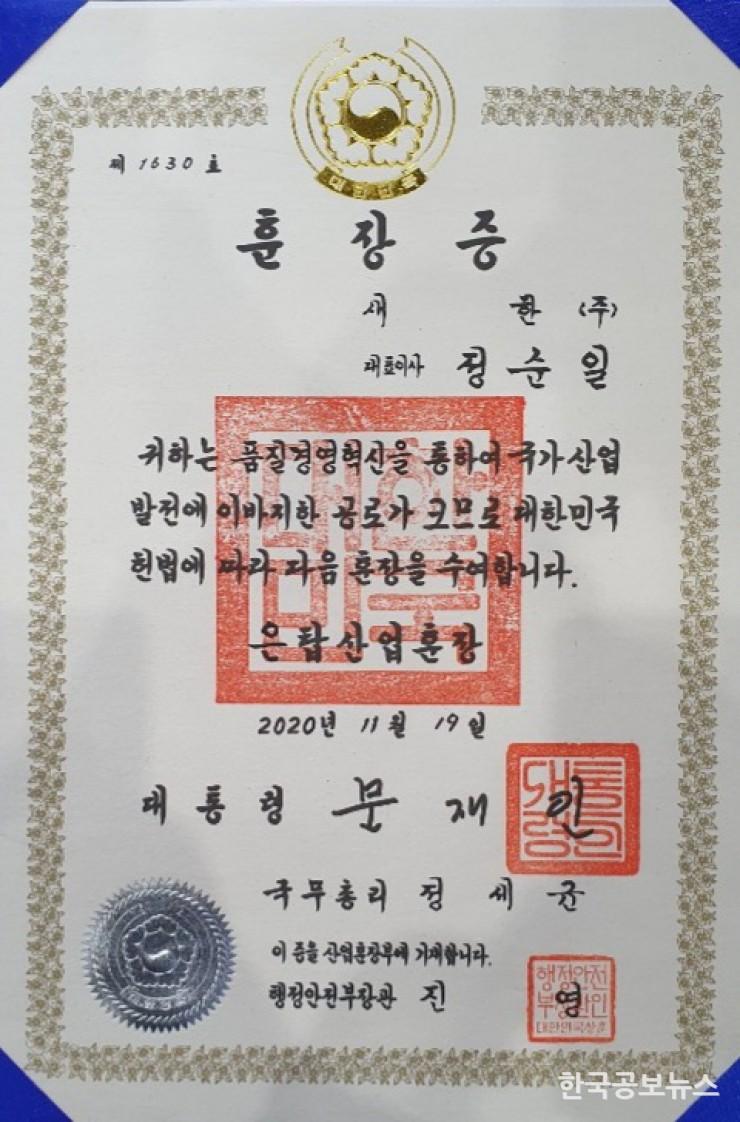 대한민국
제 1630 호
훈 장 증
새 한 (주)
대표이사 정 순 일
귀하는 품질경영혁신을 통하여 국가 산업
발전에 이바지한 공로가 크므로 대한민국
헌법에 따라 다음 훈장을 수여합니다.
은탑산업훈장
2020년 11월 19일
대 통 령 문 재 인
국무총리 정 세 균
이 증을 산업훈장부에 기재합니다.
행정안전부장관 진 영
행정안전
부장관인
대한민국상훈
한국공보뉴스